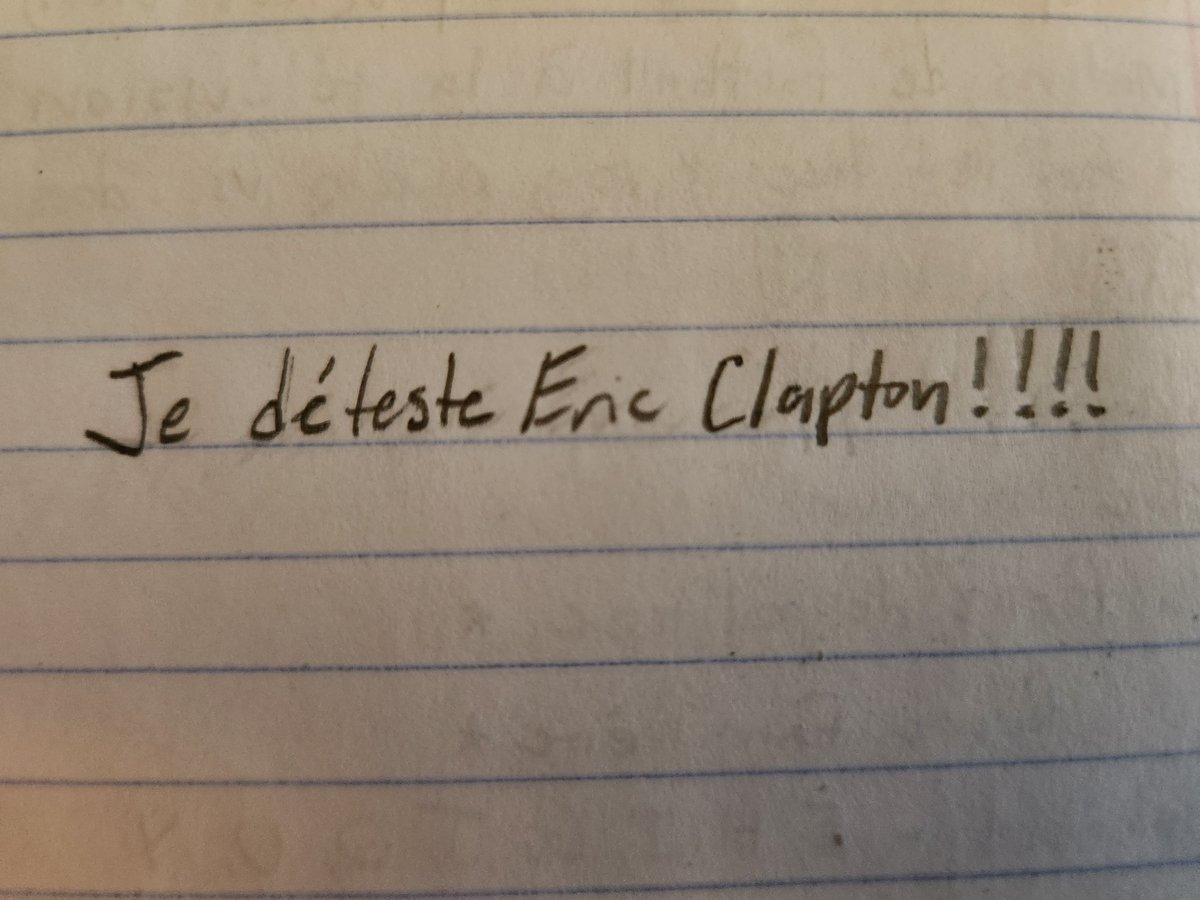 Je déteste Eric Clapton!!!!